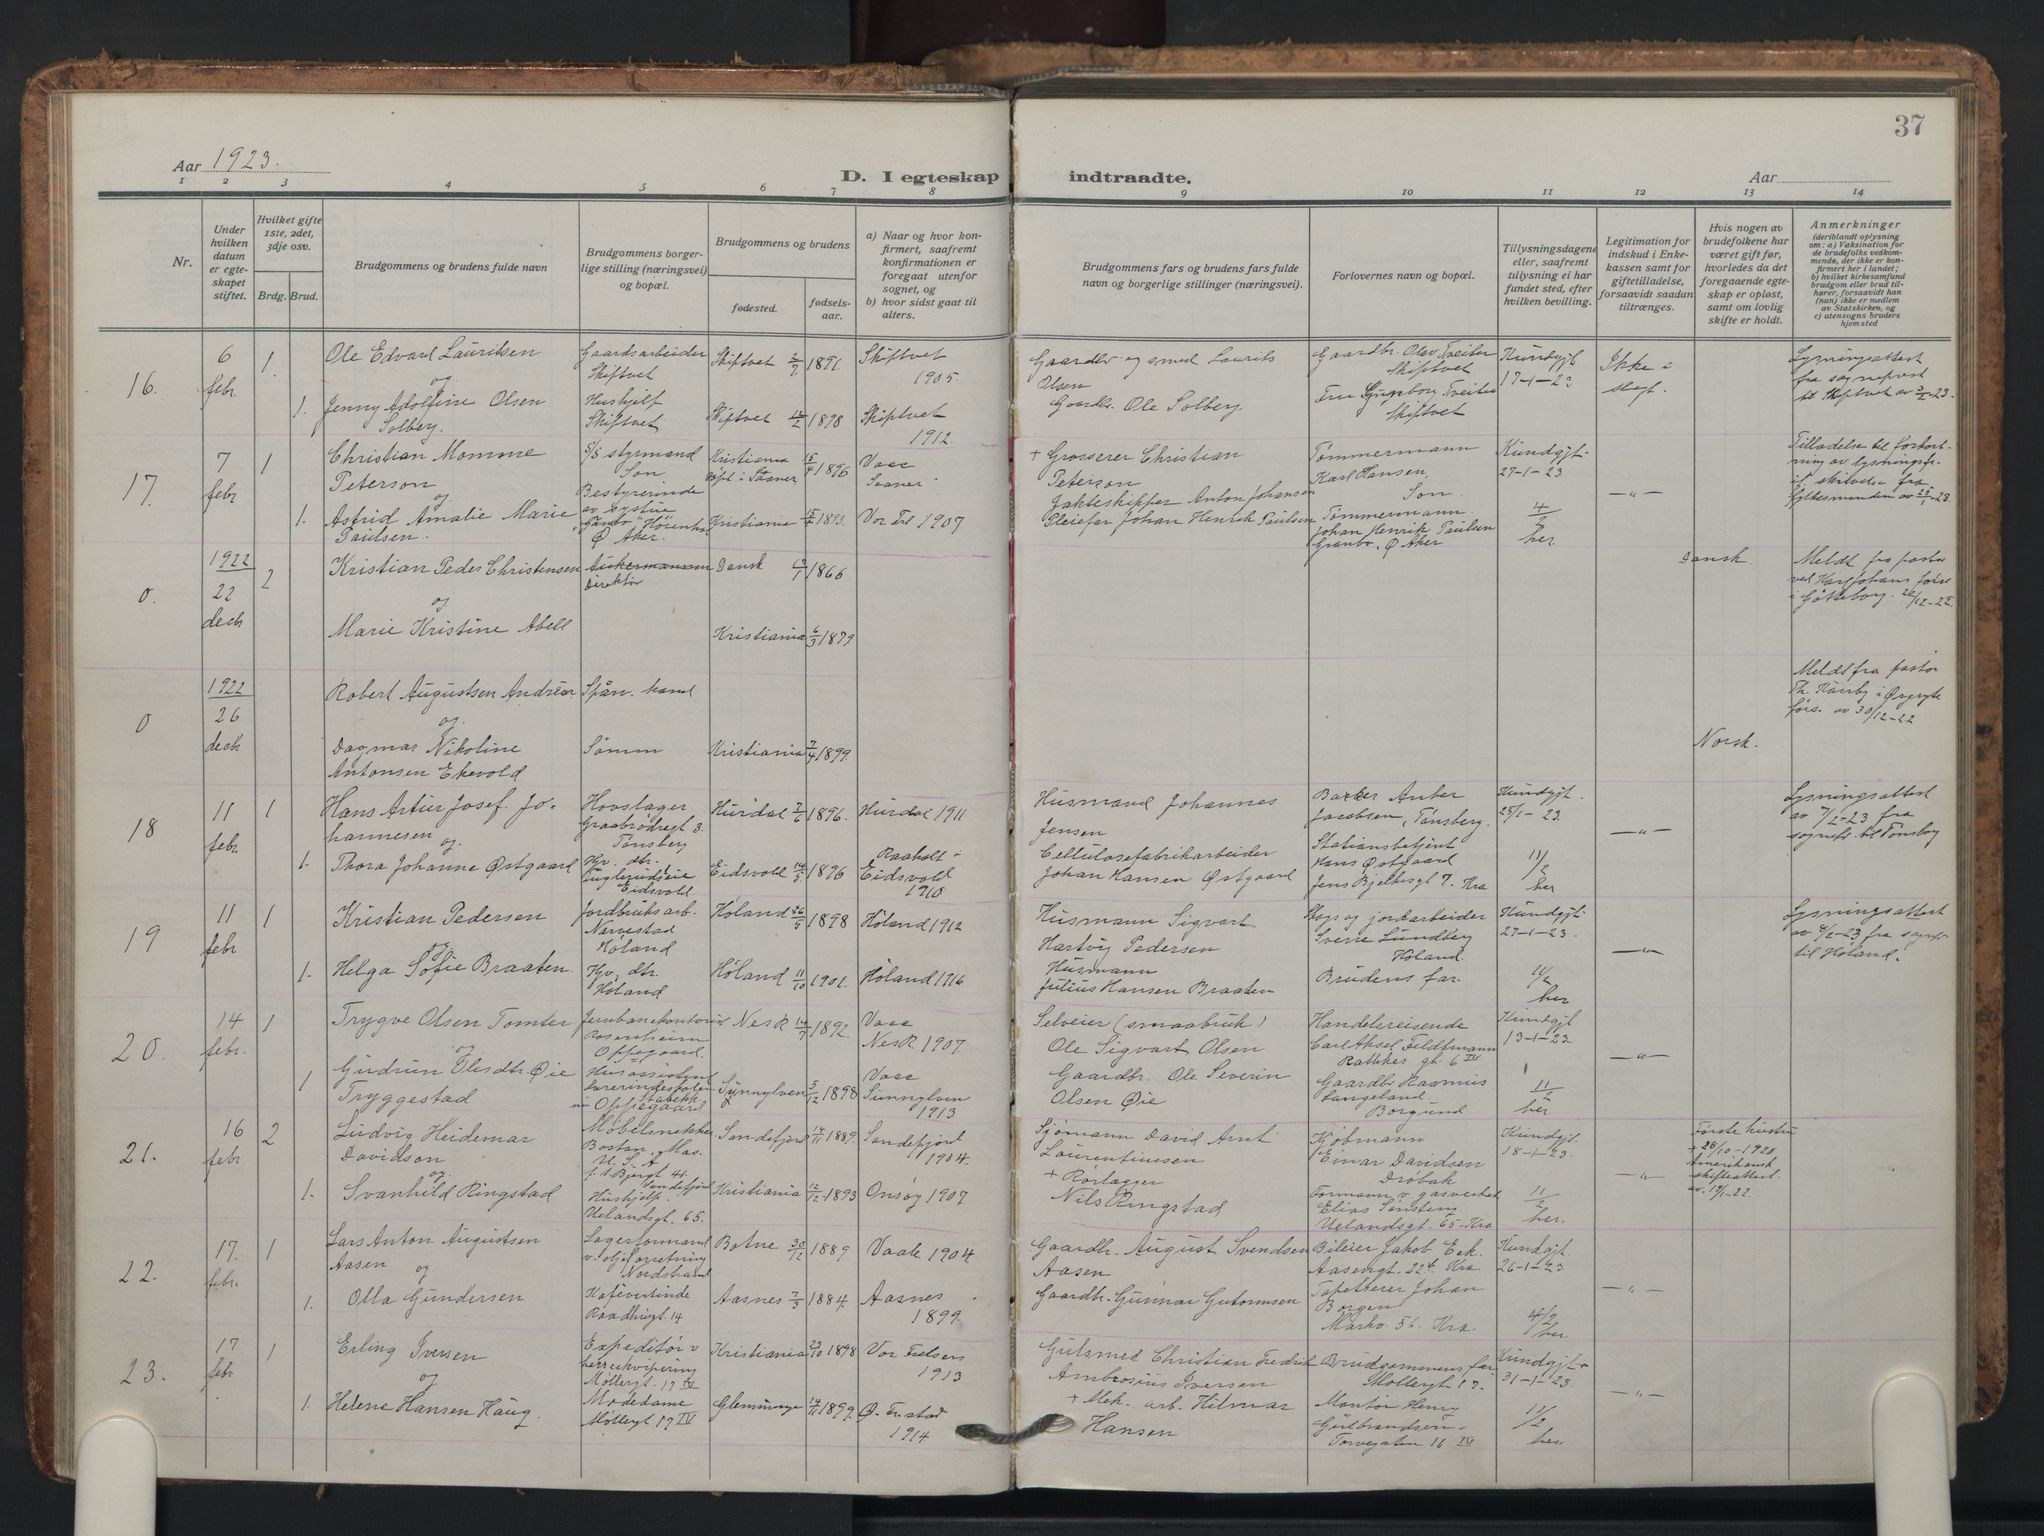 37
Aar 1923.
D. I egteskap indtraadte.
Aar
1 2 3 4 5 6 7 8 9 10 11 12 13 14
Nr.
Under hvilken datum er egteskapet stiftet.
Hvilket gifte 1ste, 2det, 3dje osv.
Brdg. Brud.
Brudgommens og brudens fulde navn
Brudgommens borgerlige stilling (næringsvei) og bopæl.
Brudgommens og brudens
fødested.
fødselsaar.
a) Naar og hvor konfirmert, saafremt konfirmationen er foregaat utenfor sognet, og
b) hvor sidst gaat til alters.
Brudgommens fars og brudens fars fulde navn og borgerlige stillinger (næringsvei).
Forlovernes navn og bopæl.
Tillysningsdagene eller, saafremt tillysning ei har fundet sted, efter hvilken bevilling.
Legitimation for indskud i Enkekassen samt for giftetilladelse, forsaavidt saadan tiltrænges.
Hvis nogen av brudefolkene har været gift før, hvorledes da det foregaaende egteskap er opløst, samt om lovlig skifte er holdt.
Anmerkninger
(deriblandt oplysning om: a) Vaksination for de brudefolks vedkommende, der ikke er konfirmert her i landet; b) hvilket kirkesamfund brudgom eller brud tilhører, forsaavidt han (hun) ikke er medlem av Statskirken, og c) utensogns bruders hjemsted
16. 6 febr. 1
Ole Edvard Lauritsen
og
Gaardsarbeider
Skiptvet
Skiptvet 2/7 1891.
Skiptvet
1905.
Gaardbr. og smed Laurits
Olsen
Gaardbr. Olav Treiter
Skiptvet
Kundgjt
17-1-23
Ikke i
slegt.
Lysningsattest
fra sogneprest
til Skiptvet av 3/2-23.
1. Jenny Adolfine Olsen
Solberg.
Hushjelp
Skiptvet
Skiptvet 12/2 1898
Skiptvet
1912.
Gaardbr. Ole Solberg.
Fru Ingeborg Treiter
Skiptvet
17. 7 febr 1
Christian Momme
Peterson
og
S/S styrmand
Son
Kristiania
døpt i Saaner 15/4 1896
Vacc
Saaner
+ Grosserer Christian
Peterson
Tømmermann
Karl Hansen,
Son.
Kundgjt.
27-1-23
—"—
Tilladelse til forkortning av lysningsfr.
fra
Fylkesmanden av 25/1-23.
1. Astrid Amalie Marie
Paulsen.
Bestyrerinde
av Systue
Ø Aker.
Kristiania 5/5 1893.
Vor Frl 1907.
Jakteskipper Anton Johansen
Pleiefar Johan Henrik Paulsen
Tømmermann
Johan Henrik Paulsen
Granbo. Ø Aker
4/2
her
0. 1922
22
decb 2
Kristian Peder Christensen
og
Direktør
Dansk 13/1 1866
Dansk.
Meldt fra pastor
ved Karl Johans førs.
i Gøteborg. 26/12-22
Marie Kristine Abell
Kristiania 6/3 1879
0 1922
26
decb
Robert Augustsen Andréer
og
Spårv. karl
Meldt fra pastor
Th. Kårby i Ørgryte
førs. av 30/12-22
Dagmar Nikoline
Antonsen Ekevold
Sømm
Kristiania 7/4 1899.
Norsk.
18 11 febr 1
Hans Artur Josef. Johannesen
og.
Hovslager
Graabrødregt 3.
Tønsberg
Hurdal 7/6 1896.
Hurdal 1911
Husmand Johannes
Jensen
Baker Anker
Jacobsen, Tønsberg.
Kundgjt.
25/1-23.
—"—
Lysningsattest
av 7/2-23 fra
sognepr. til Tønsbg
1. Thora Johanne Østgaard
Hjv. dtr.
Eidsvold.
Eidsvold 14/5 1896
Raaholt i
Eidsvold
1910
Cellulosefabrikarbeider
Johan Hansen Østgaard
Stationsbetjent
Hans Østgaard
Jens Bjelkesgt 7. Kra
11/2
her
19 11 febr 1
Kristian Pedersen
og
Jordbruksarb.
Navestad
Høland
Høland 26/5 1898
Høland 1912
Husmann Sigvart
Hartvig Pedersen
Skogs og jordarbeider
Sverre Lundberg
Høland.
Kundgjt.
27-1-23.
—"—
Lysningsattest
av 4/2-23 fra sognepr
til Høland.
1. Helga Sofie Braaten.
Hjv. dtr.
Høland
Høland 11/10 1901.
Høland 1916
Husmann
Julius Hansen Braaten
Brudens far.
11/2
her
20. 14 febr. 1
Trygve Olsen Tomter
og
Jernbanekontorist
Rosenheim
Oppegaard.
Nes R 14/7 1892.
Vacc
Nes R. 1907.
Selveier (smaabruk)
Ole Sigvart Olsen
Handelsreisende
Carl Aksel Feldtmann
Rathkes gt. 6 IV
Kundgjt
13-1-23
—"—
1 Gudrun Olesdtr. Øie
Tryggestad
Husassistent
Lærerindeskolen
Stabekk
nu Oppegaard
Synnylven 5/12 1898
Vacc
Sunnylven
1913
Gaardbr. Ole Severin
Olsen Øie
Gaardbr. Rasmus
Langeland
Borgund
11/2
her
21. 16 febr 2
Ludvig Heidemar
Davidson
og.
Møbelsnekker
Boston, Mas.
U. S. A
Sandefjord
Sandefjord 14/11 1889.
Sandefjord
1904.
Sjømann David Arnt
Laurentiussen
Kjøbmann
Einar Davidsen
Drøbak
Kundgjt.
18-1-23.
—"—
Første hustru
+ 28/10-1920
Amerikansk
skifteattest
av. 19/1-22.
1. Svanhild Ringstad
Hushjelp
Uelandsgt. 65.
Kristiania 12/12 1893
Onsøy 1907
+ Rørlægger
Nils Ringstad
Formann v. gasverket
Elias Tønsberg
Uelandsgt. 65. Kra
11/2
her.
22. 17. febr. 1
Lars Anton Augustsen
Aasen og
Lagerformand
v. oljeforretning
Nordstrand
Botne 30/12 1889
Vaale 1904.
Gaardbr. August Svendsen
Aasen
Bileier Jakob Eek.
Aasengt. 22b Kra.
Kundgjt.
26-1-23
—"—
1. Olla Gundersen
Kafévertinde
Raadhusgt. 14
Aasnes 7/5 1884.
Aasnes
1899.
Gaardbr. Gunnar Gutormsen
Tapetserer Johan
Borgen
Markv. 56. Kra.
4/2
her.
23. 17 febr 1
Erling Iversen
og
Expeditør v
herreekvipering
Møllergt. 17 IV
Kristiania 23/10 1898
Vor Frelsers
1913
Gulsmed Christian Fredrik
Ambrosius Iversen
Brudgommens far
Møllergt 17.
Kundgjt.
31-1-23.
—"—
1. Helene Hansen Haug.
Motedame
Møllergt 17 IV
Glemminge 14/11 1899.
Ø. Fr.stad
1914
+ Mek. arb. Hilmar
Hansen
Montør Henry
Gulbrandsen
Torvegaten 16 IV
11/2
her.